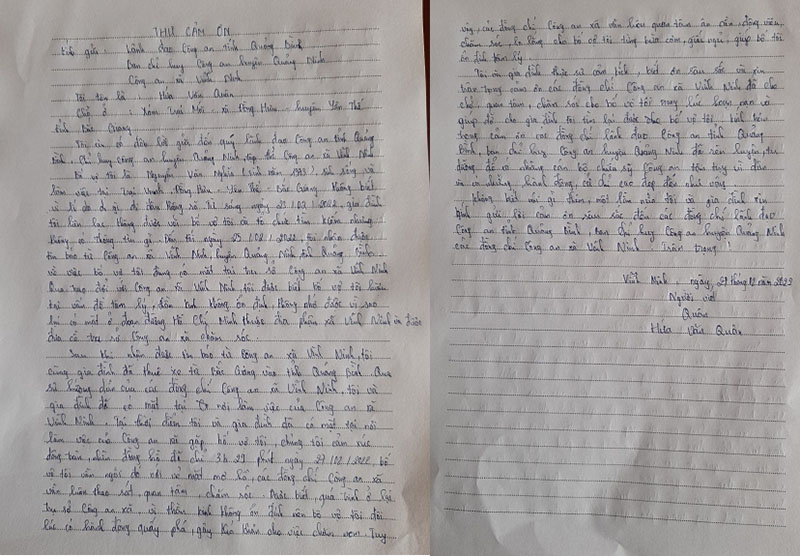 THƯ CẢM ƠN
Kính gửi: Lãnh đạo Công an tỉnh Quảng Bình
Ban chỉ huy Công an huyện Quảng Ninh
Công an xã Vĩnh Ninh
Tôi tên là: Hứa Văn Quân
Chỗ ở: Xóm Trại Mới - xã Đồng Hưu - huyện Yên Thế
tỉnh Bắc Giang
Tôi xin có đôi lời gửi đến quý lãnh đạo Công an tỉnh Quảng
Bình, Chỉ huy công an huyện Quảng Ninh, tập thể Công an xã Vĩnh Ninh
Bố vợ tôi là Nguyễn Văn Nghĩa (sinh năm 1973), sinh sống và
làm việc tại Trại Vanh - Đồng Hưu - Yên Thế - Bắc Giang không biết
vì lí do gì đi đâu không rõ, từ sáng ngày 23/02/2022, gia đình
tôi liên lạc không được với bố vợ tôi và tổ chức tìm kiếm nhưng
không có thông tin gì. Đến tối ngày 25/02/2022, tôi nhận được
tin báo từ Công an xã Vĩnh Ninh, huyện Quảng Ninh, tỉnh Quảng Bình
về việc bố vợ tôi đang có mặt tại trụ sở Công an xã Vĩnh Ninh
Qua trao đổi với Công an xã Vĩnh Ninh, tôi được biết bố vợ tôi hiện
tại vấn đề tâm lý, thần kinh không ổn định, không nhớ được vì sao
lại có mặt ở đoạn đường Hồ Chí Minh thuộc địa phận xã Vĩnh Ninh và được
đưa về trụ sở Công an xã chăm sóc.
Sau khi nhận được tin báo từ Công an xã Vĩnh Ninh, tôi
cùng gia đình đã thuê xe từ Bắc Giang vào tỉnh Quảng Bình. Qua
sự hướng dẫn của các đồng chí Công an xã Vĩnh Ninh, tôi và
gia đình đã có mặt tại nơi làm việc của Công an xã
Vĩnh Ninh. Tại thời điểm tôi và gia đình đã có mặt tại nơi
làm việc của Công an xã gặp bố vợ tôi, chúng tôi cảm xúc
đồng hồ đã chỉ 3h29 phút ngày 27/02/2022, bố
vợ tôi vẫn ngồi đó với vẻ mặt mơ hồ, các đồng chí Công an xã
vẫn luôn theo sát, quan tâm, chăm sóc. Được biết, quá trình ở lại
trụ sở Công an xã, vì thần kinh không ổn định nên bố vợ tôi đôi
lúc có hành động quấy phá, gây khó khăn cho việc chăm nom. Tuy
vậy, các đồng chí Công an xã vẫn luôn quan tâm ân cần, động viên,
chăm sóc, lo lắng cho bố vợ tôi từng bữa cơm, giấc ngủ, giúp bố tôi
ổn định tâm lý.
Tôi và gia đình thực sự cảm kích, biết ơn sâu sắc và xin
trân trọng cảm ơn các đồng chí Công an xã Vĩnh Ninh đã cho
chỗ, quan tâm, chăm sóc cho bố vợ tôi trong lúc hoạn nạn và
giúp đỡ cho gia đình tôi tìm lại được cho bố vợ tôi. Kính
trọng cảm ơn các đồng chí lãnh đạo Công an tỉnh Quảng
Bình, ban chỉ huy Công an huyện Quảng Ninh đã rèn luyện, tu
dưỡng để có những cán bộ chiến sỹ Công an tận tụy vì dân
và có những hành động, cử chỉ cao đẹp đến như vậy.
Không biết nói gì thêm, một lần nữa tôi và gia đình xin
kính gửi lời cảm ơn sâu sắc đến các đồng chí lãnh đạo
Công an tỉnh Quảng Bình, ban chỉ huy Công an huyện Quảng Ninh
các đồng chí Công an xã Vĩnh Ninh. Trân trọng!
Vĩnh Ninh, ngày 27 tháng 02 năm 2022
Người viết
Quân
Hứa Văn Quân